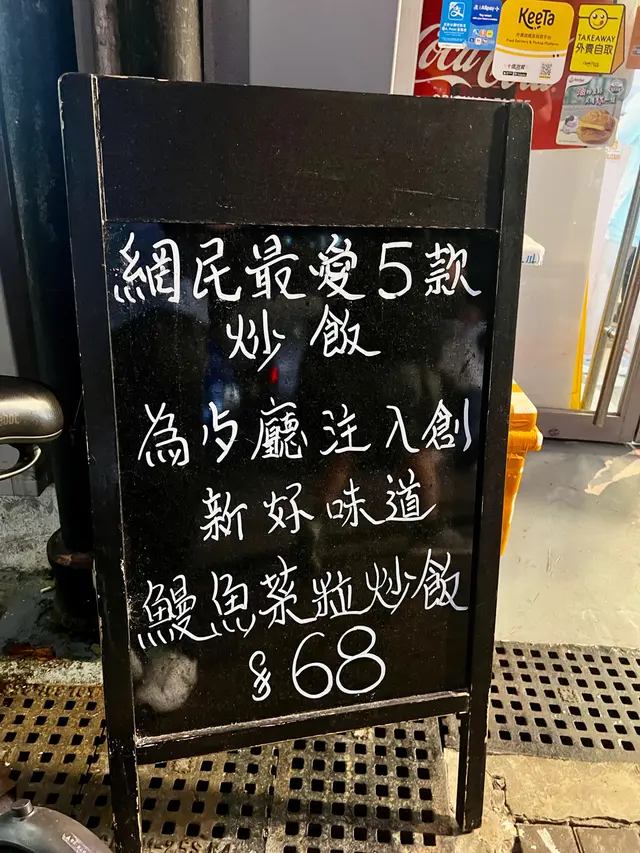 KeeTa
TAKEAWAY
外賣自取
Coca-Cola
網民最愛5款
炒飯
為歺廳注入創
新好味道
鰻魚菜粒炒飯
$68